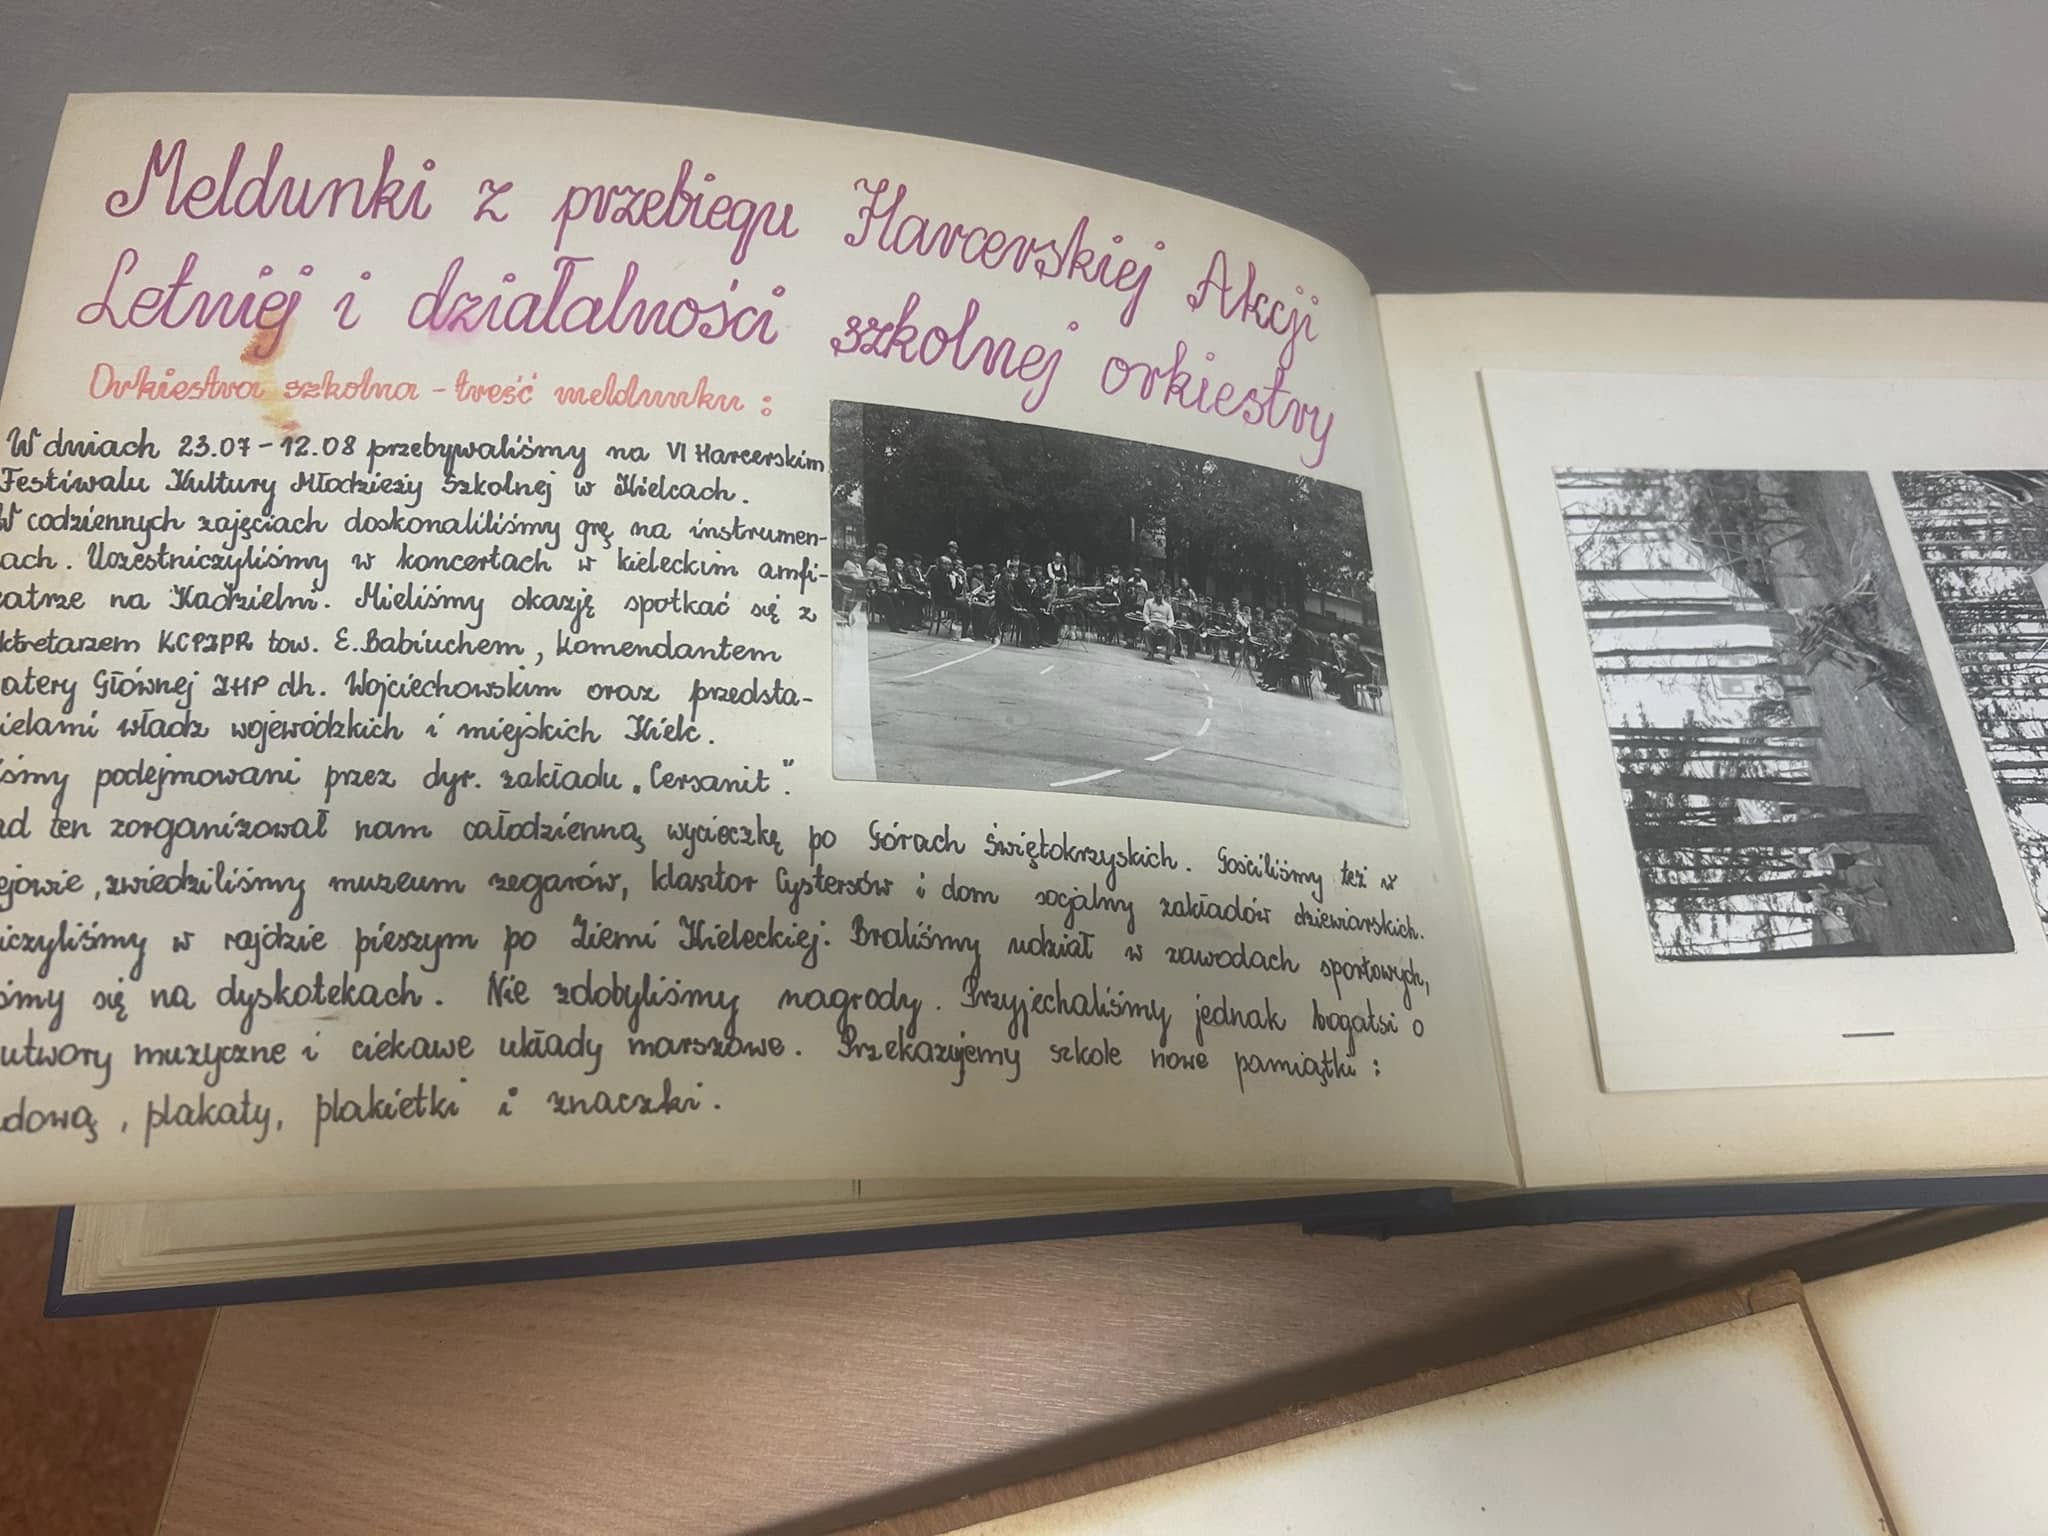 Meldunki z przebiegu Harcerskiej Akcji
Letniej i działalności szkolnej orkiestry
Orkiestra szkolna - treść meldunku :
W dniach 23.07 - 12.08 przebywaliśmy na VI Harcerskim
Festiwalu Kultury Młodzieży Szkolnej w Kielcach.
W codziennych zajęciach doskonaliliśmy grę na instrumen-
ach. Uczestniczyliśmy w koncertach w kieleckim amfi-
eatrze na Kadzielni. Mieliśmy okazję spotkać się z
ktretarzem KCPZPR tow. E. Babiuchem, komendantem
atery Głównej ZHP dh. Wojciechowskim oraz przedsta-
ielami władz wojewódzkich i miejskich Kielc.
iśmy podejmowani przez dyr. zakładu „Cersanit".
ad ten zorganizował nam całodzienną wycieczkę po Górach Świętokrzyskich. Gościliśmy też w
ejowie, zwiedziliśmy muzeum zegarów, klasztor Cystersów i dom socjalny zakładów dziewiarskich.
iczyliśmy w rajdzie pieszym po Ziemi Kieleckiej. Braliśmy udział w zawodach sportowych,
śmy się na dyskotekach. Nie zdobyliśmy nagrody. Przyjechaliśmy jednak bogatsi o
utwory muzyczne i ciekawe układy marszowe. Przekazujemy szkole nowe pamiątki :
dową, plakaty, plakietki i znaczki.